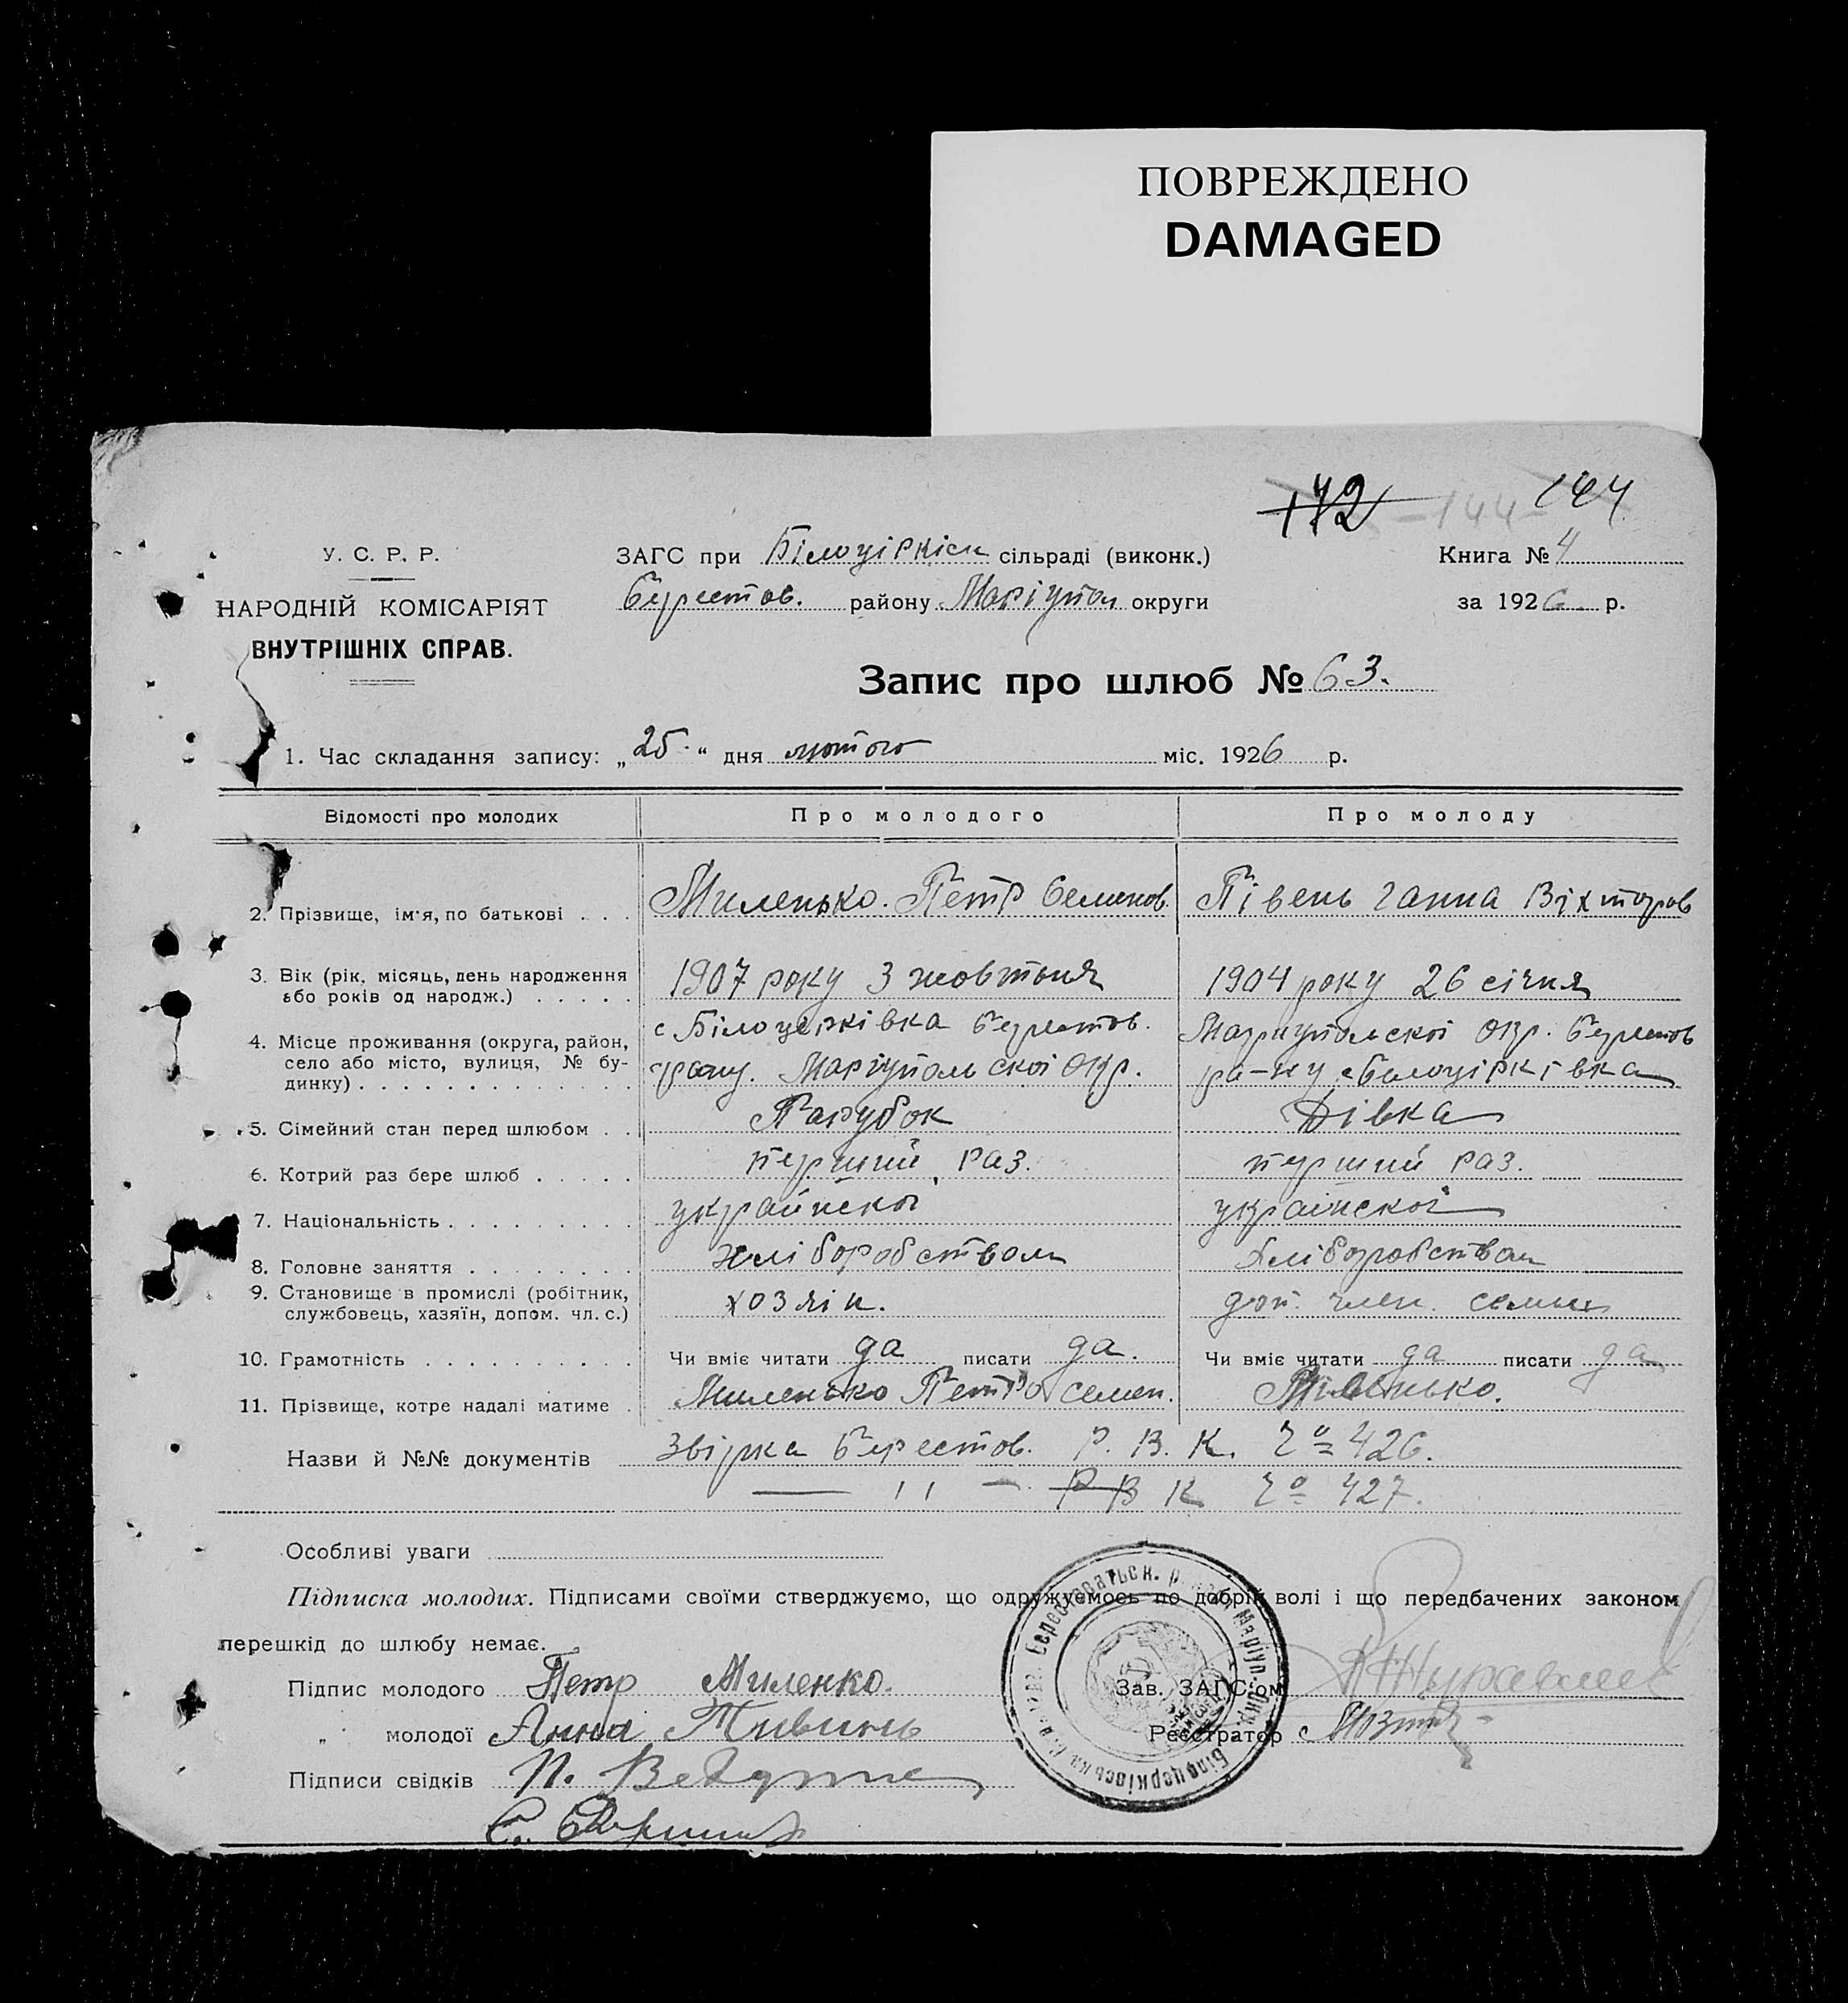 ПОВРЕЖДЕНО
DAMAGED
172 -144- 144
У. С. Р. Р.
НАРОДНІЙ КОМІСАРІЯТ
ВНУТРІШНІХ СПРАВ.
ЗАГС при Білоціркіск сільраді (виконк.)
Берестов. району Маріупол округи
Книга № 4
за 1926 р.
Запис про шлюб № 63.
1. Час складання запису: „25“ дня лютого міс. 1926 р.
Відомості про молодих Про молодого Про молоду
2. Прізвище, ім'я, по батькові . . . Миленько. Петр Семенов. Півень Ганна Вікторов
3. Вік (рік, місяць, день народження або років од народж.) . . . . . 1907 року 3 жовтня 1904 року 26 січня
4. Місце проживання (округа, район, село або місто, вулиця, № будинку) . . . с Білоцерківка Берестов. Маріупольскоі окр. Мариупольскоі окр. Берестов ра-ну с Билоцірківка
5. Сімейний стан перед шлюбом . . Парубок Дівка
6. Котрий раз бере шлюб . . . . . перший раз. перший раз.
7. Національність . . . . . . . . . украйнскоі украінскоі
8. Головне заняття . . . . . . . хліборобством хліборобством
9. Становище в промислі (робітник, службовець, хазяїн, допом. чл. с.) хозяін. доп. член. семьи
10. Грамотність . . . . . . . . . . Чи вміє читати да писати да. Чи вміє читати да писати да
11. Прізвище, котре надалі матиме . Миленько Петро Семен. Миленько.
Назви й №№ документів Звірка Берестов. Р. В. К. № 426.
— ״ — Р В К № 427.
Особливі уваги
Підписка молодих. Підписами своїми стверджуємо, що одружуємось по добрій волі і що передбачених законом
перешкід до шлюбу немає.
Підпис молодого Петр Миленко.
„ молодої Анна Пивинь
Підписи свідків П.
С.
Зав. ЗАГС'ом
Реєстратор